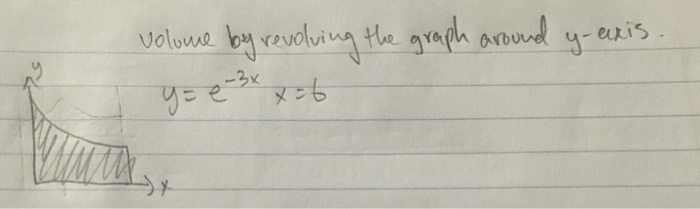 volume by revolving the graph around y-axis.
y
y = e^-3x x = 6
x